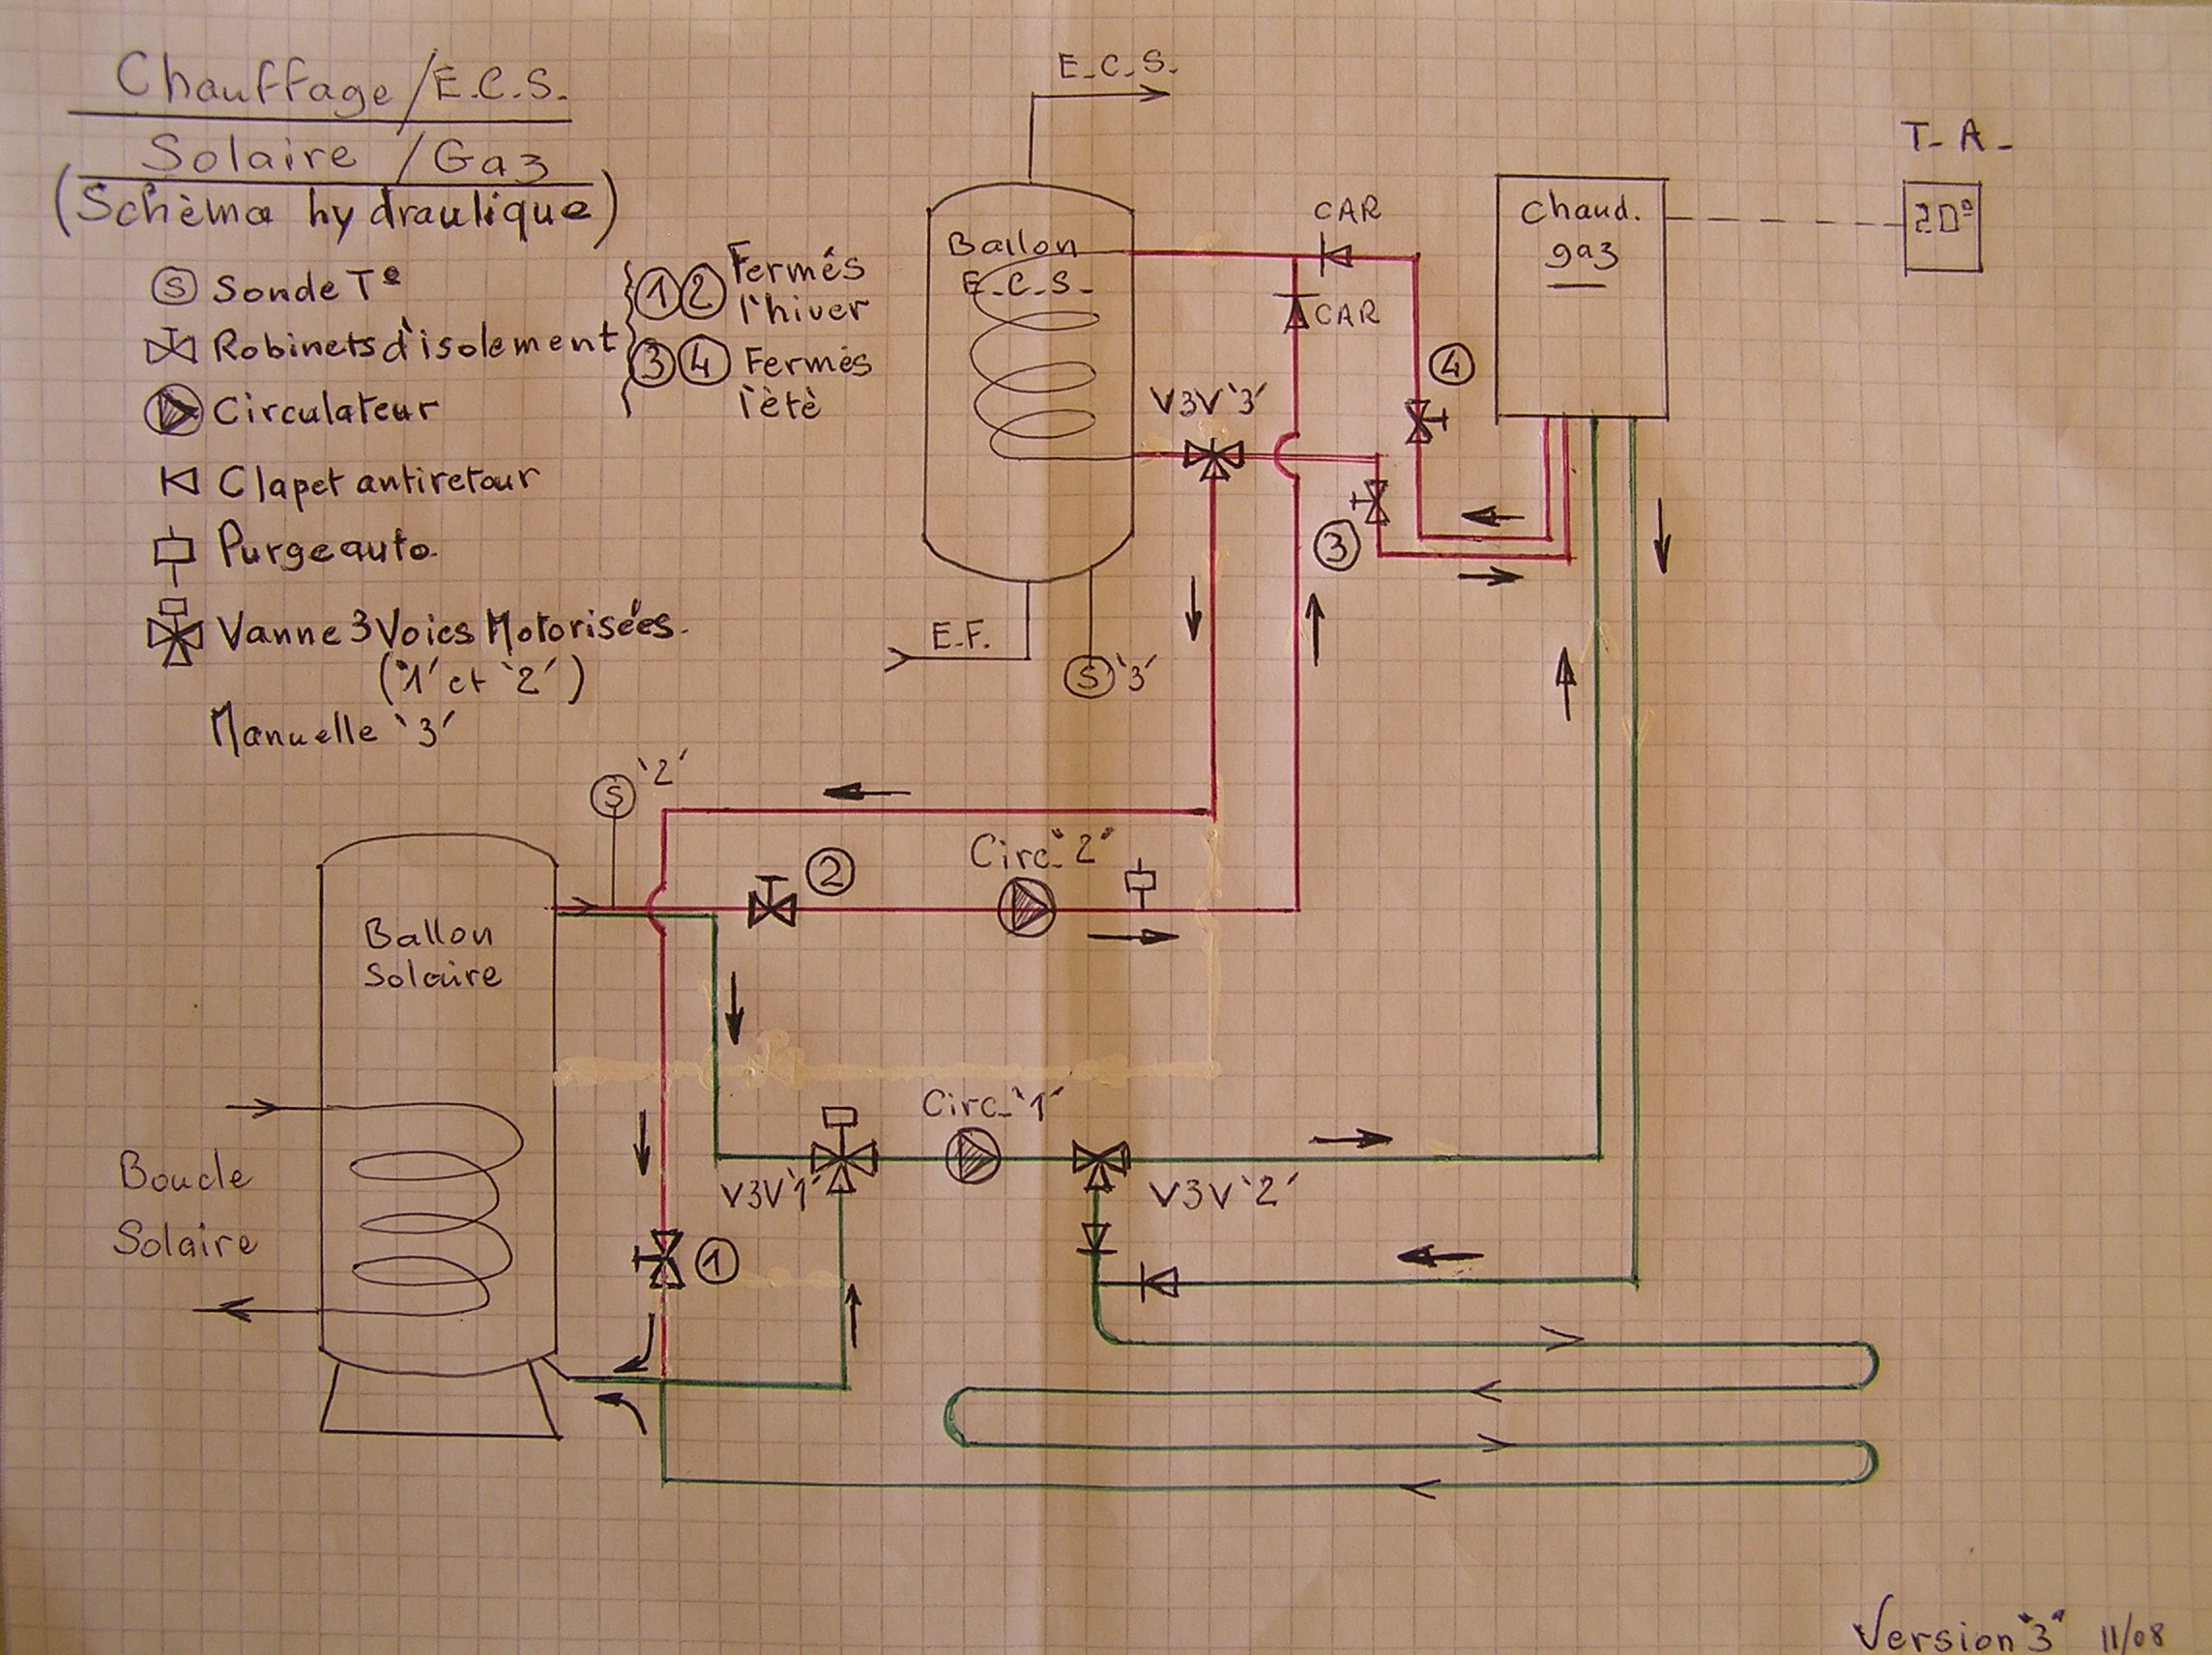 Chauffage/E.C.S.
Solaire /Gaz
(Schèma hydraulique)
S Sonde T°
Robinets d'isolement
Circulateur
Clapet antiretour
Purge auto.
Vanne 3 Voies Motorisées.
("1' et '2')
Manuelle '3'
1 2 Fermés
l'hiver
3 4 Fermés
l'ètè
E.C.S.
Ballon
E.C.S.
E.F.
S '3'
CAR
CAR
V3V '3'
4
3
Chaud.
gaz
T.A.
20°
S '2'
2
Circ. "2"
Ballon
Solaire
Boucle
Solaire
Circ. '1'
V3V '1'
V3V '2'
1
Version "3" 11/08